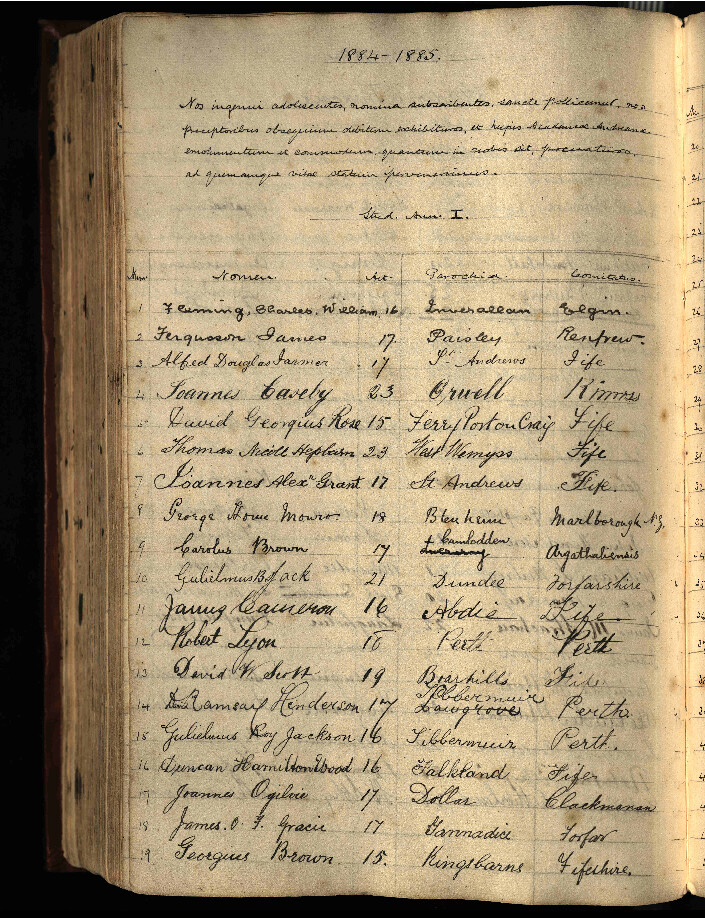 1884-1885.
Nos ingenui adolescentes, nomina subscribentes, sancte pollicemur, nos
præceptoribus obsequium debitum exhibituros, et hujus Academiæ Andreanæ
emolumentum et commodum, quantum in nobis sit, procuraturos,
ad quemcunque vitæ statum pervenerimus.
Stud. Ann. I.
Num. Nomen. Aet. Parochia. Comitatus.
1 Fleming, Charles, William, 16 Inverallan Elgin.
2 Fergusson James 17. Paisley Renfrew.
3 Alfred Douglas Farmer 17 St. Andrews Fife
4 Joannes Caseby 23 Orwell Kinross
5 David Georgius Rose 15 Ferry Port on Craig Fife
6 Thomas Nicoll Hepburn 23 West Wemyss Fife
7 Joannes Alexr Grant 17 St Andrews Fife.
8 George Howe Monro 18 Blenheim Marlborough N.Z.
9 Carolus Brown 17 Camlodden Argathaliensis
10 Gulielmus B Jack 21 Dundee Forfarshire
11 James Cameron 16 Abdie Fife
12 Robert Lyon 18 Perth Perth
13 David W. Scott 19 Boarhills Fife
14 Ramsay Henderson 17 Tibbermuir Lawgrove Perth.
15 Gulielmus Roy Jackson 16 Tibbermuir Perth.
16 Duncan Hamilton Wood 16 Falkland Fife
17 Joannes Ogilvie 17 Dollar Clackmanan
18 James. O. F. Gracie 17 Tannadice Forfar
19 Georgius Brown. 15. Kingsbarns Fifeshire.